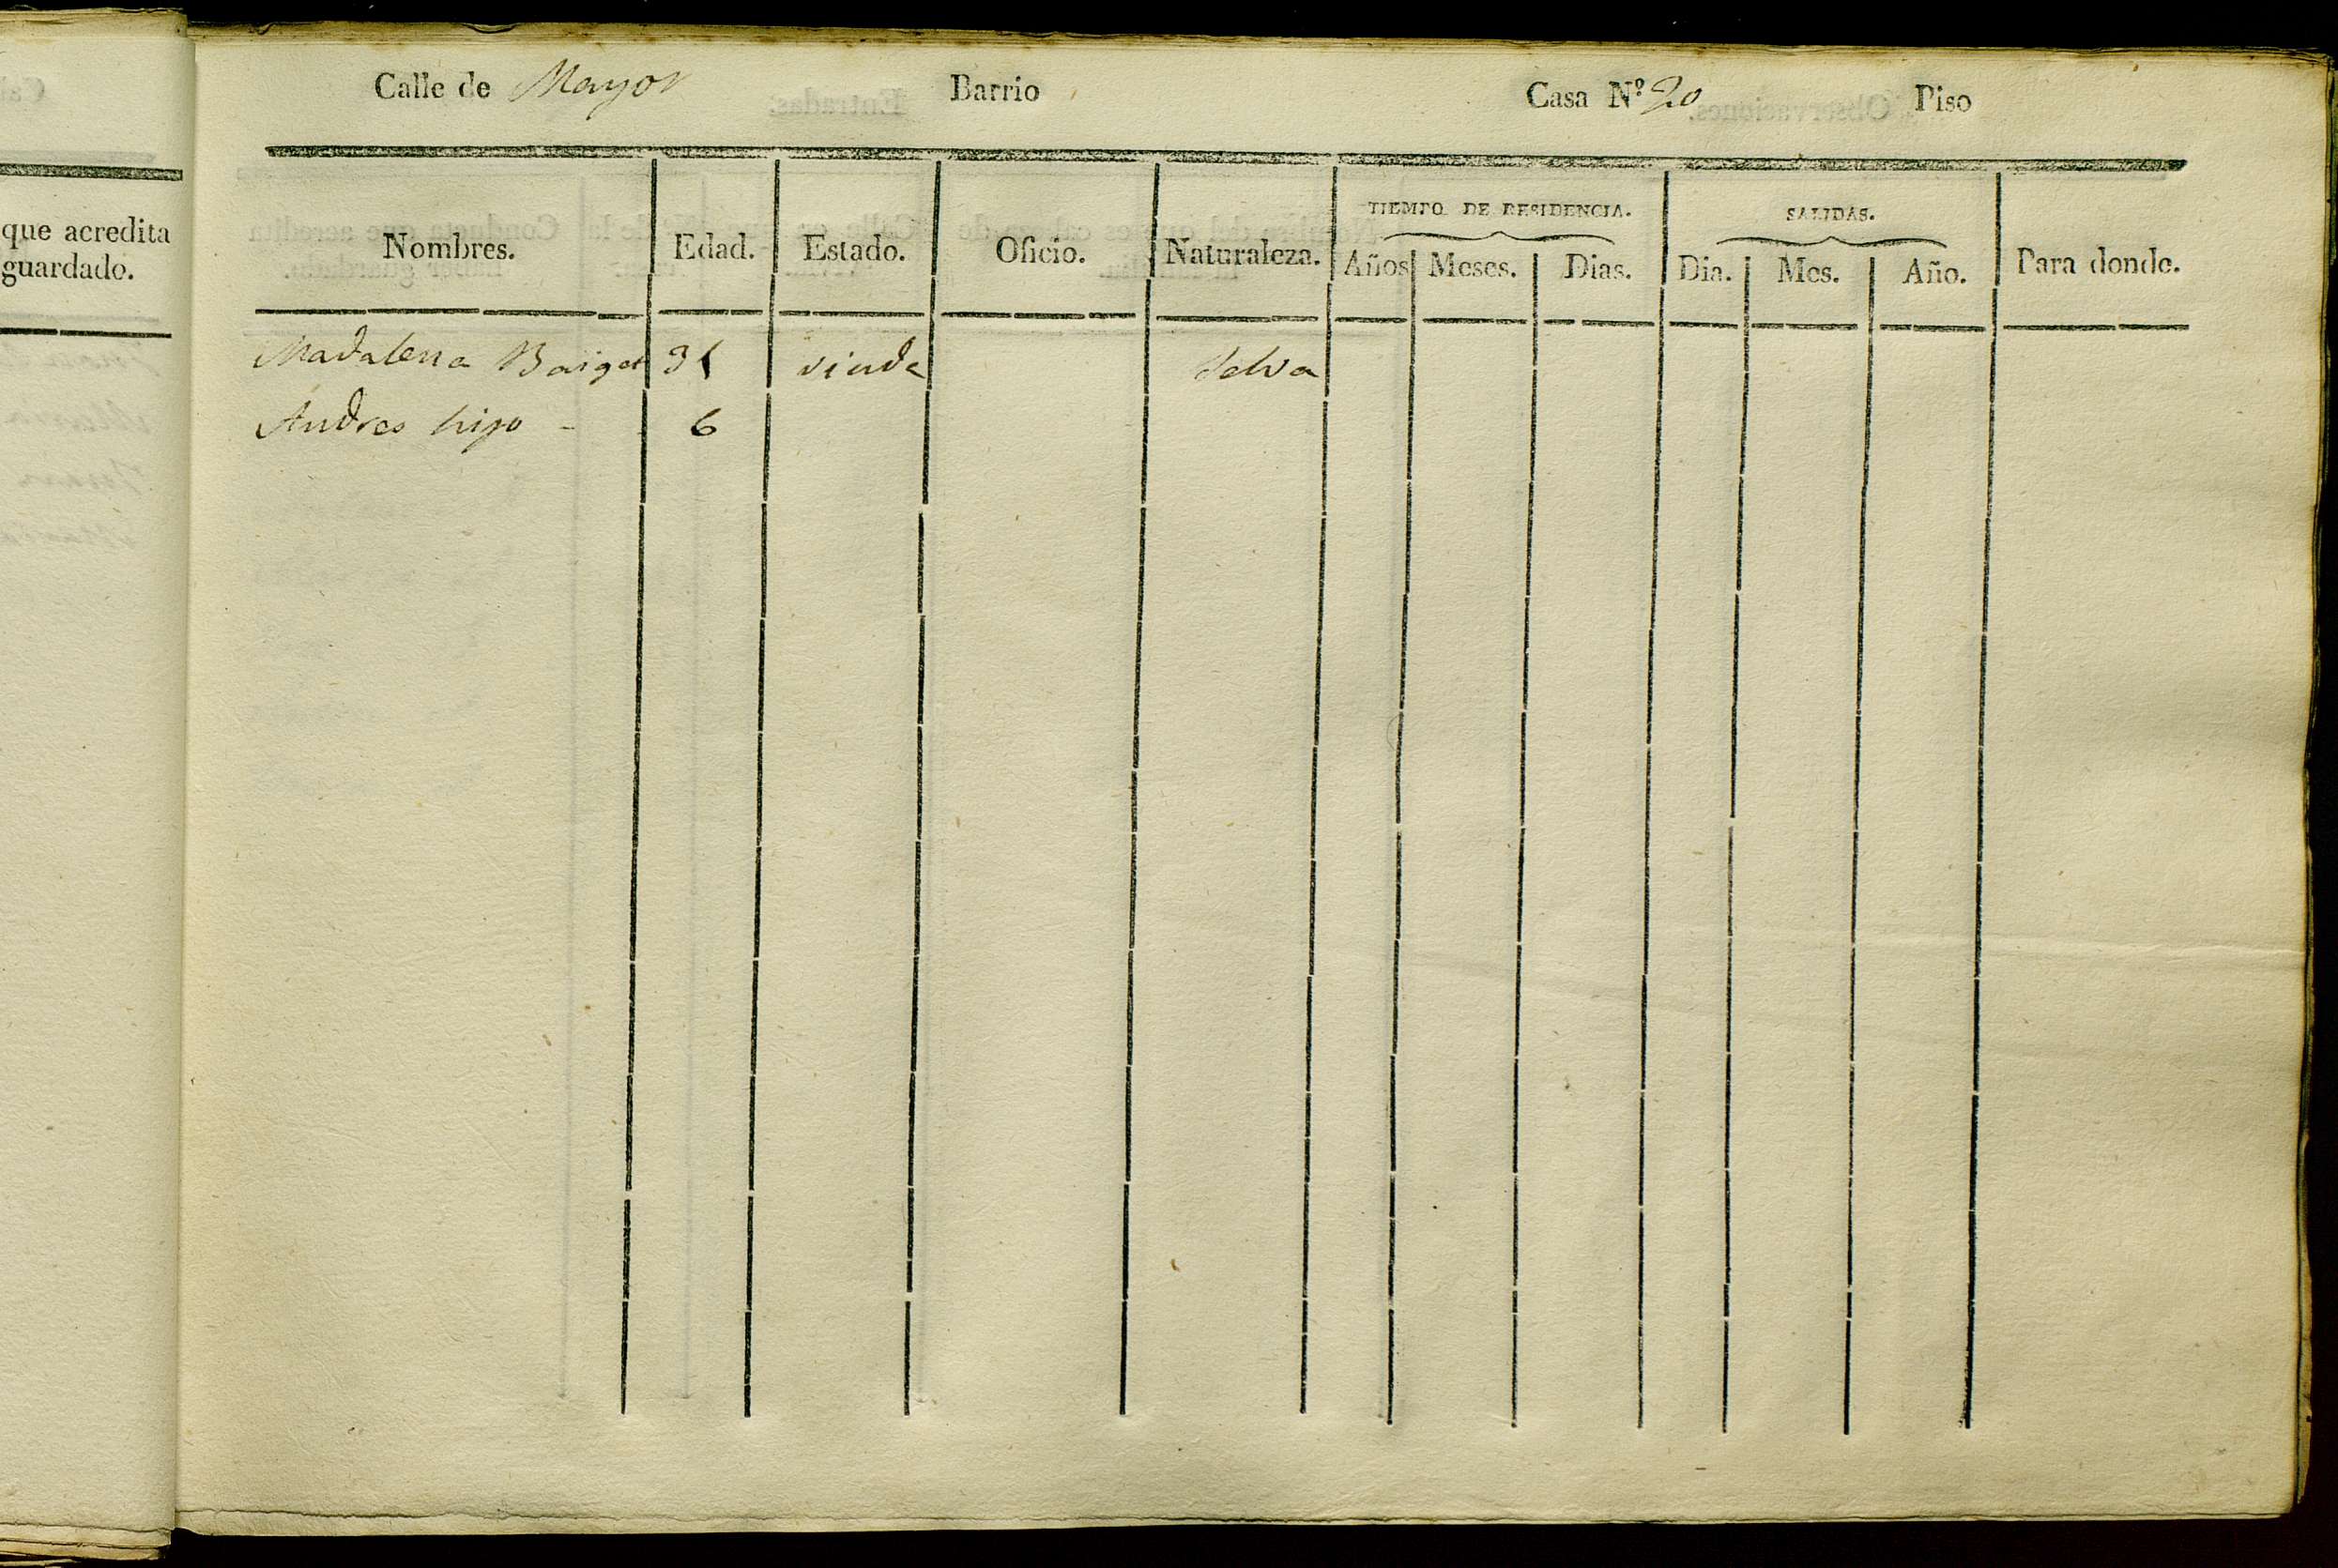 que acredita
guardado.
Calle de Mayor Barrio Casa Nº 20 Piso
TIEMPO DE RESIDENCIA. SALIDAS.
Nombres. Edad. Estado. Oficio. Naturaleza. Años Meses. Dias. Dia. Mes. Año. Para donde.
Madalena Baiget viuda Selva
Andres hijo - 6